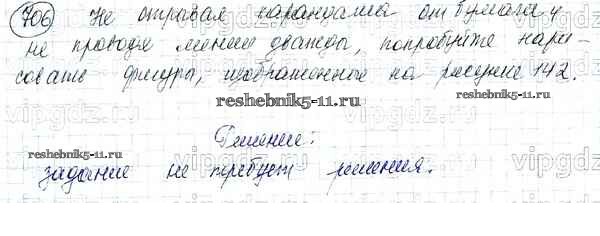 706 Не отрывая карандаша от бумаги и
не проводя линии дважды, попробуйте нари-
совать фигуры, изображенное на рисунке 142.
reshebnik5-11.ru reshebnik5-11.ru
Решение:
reshebnik5-11.ru reshebnik5-11.ru
задание не требует решения.